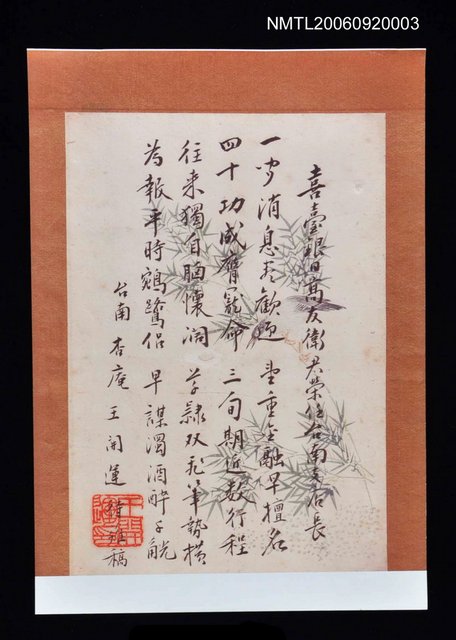 NMTL20060920003
喜臺銀日高友衛君榮任台南支店長
一聞消息表歡迎 望重金融早擅名
四十功成膺寵命 三旬期近數行程
往來獨自胸懷濶 草隸双飛筆勢橫
為報平時鷄鷺侶 早謀濁酒醉千觥
台南 杏庵 王開運 稿